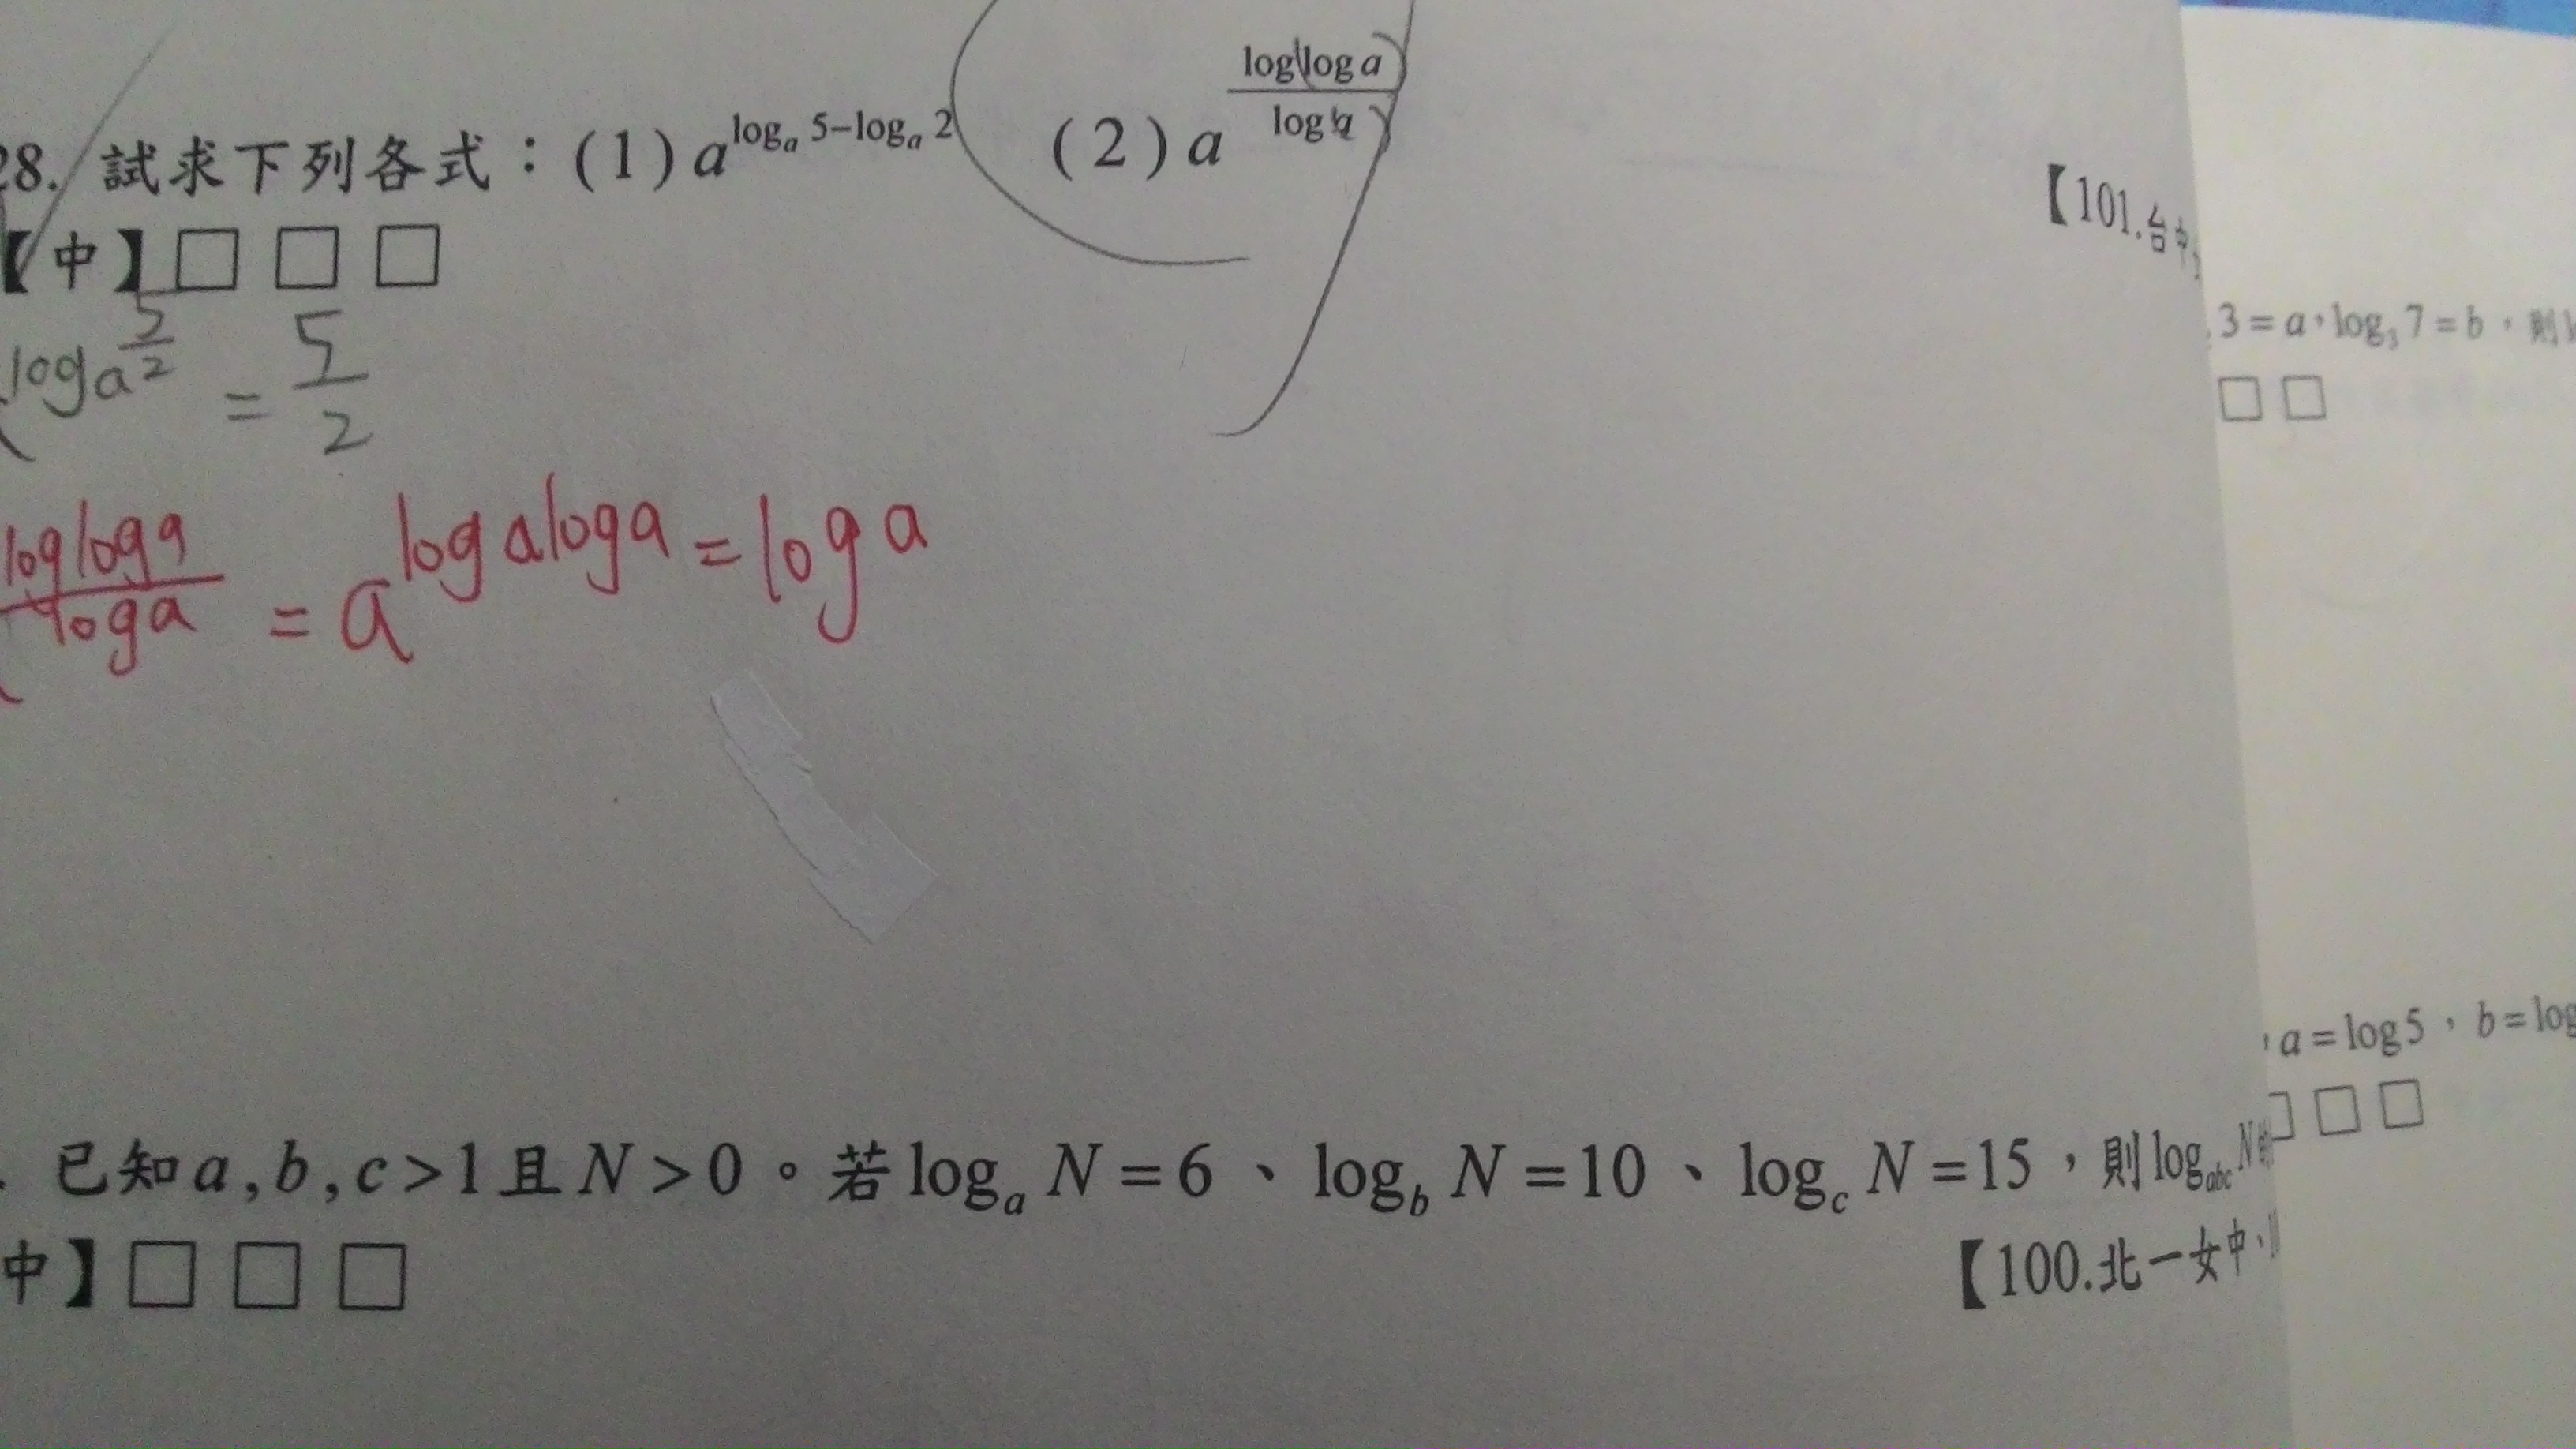 28. 試求下列各式：(1) a^{log_a 5−log_a 2} (2) a^{\frac{log(log a)}{log a}}
【101.台中
【中】□ □ □
log_a \frac{5}{2} = \frac{5}{2}
\frac{log log a}{log a} = a^{log a log a} = log a
已知 a , b , c > 1 且 N > 0。若 log_a N = 6、log_b N = 10、log_c N = 15，則 log_{abc} N
【100.北一女中、
中】□ □ □
3 = a，log_3 7 = b，則
□ □
a = log 5，b = log
□ □